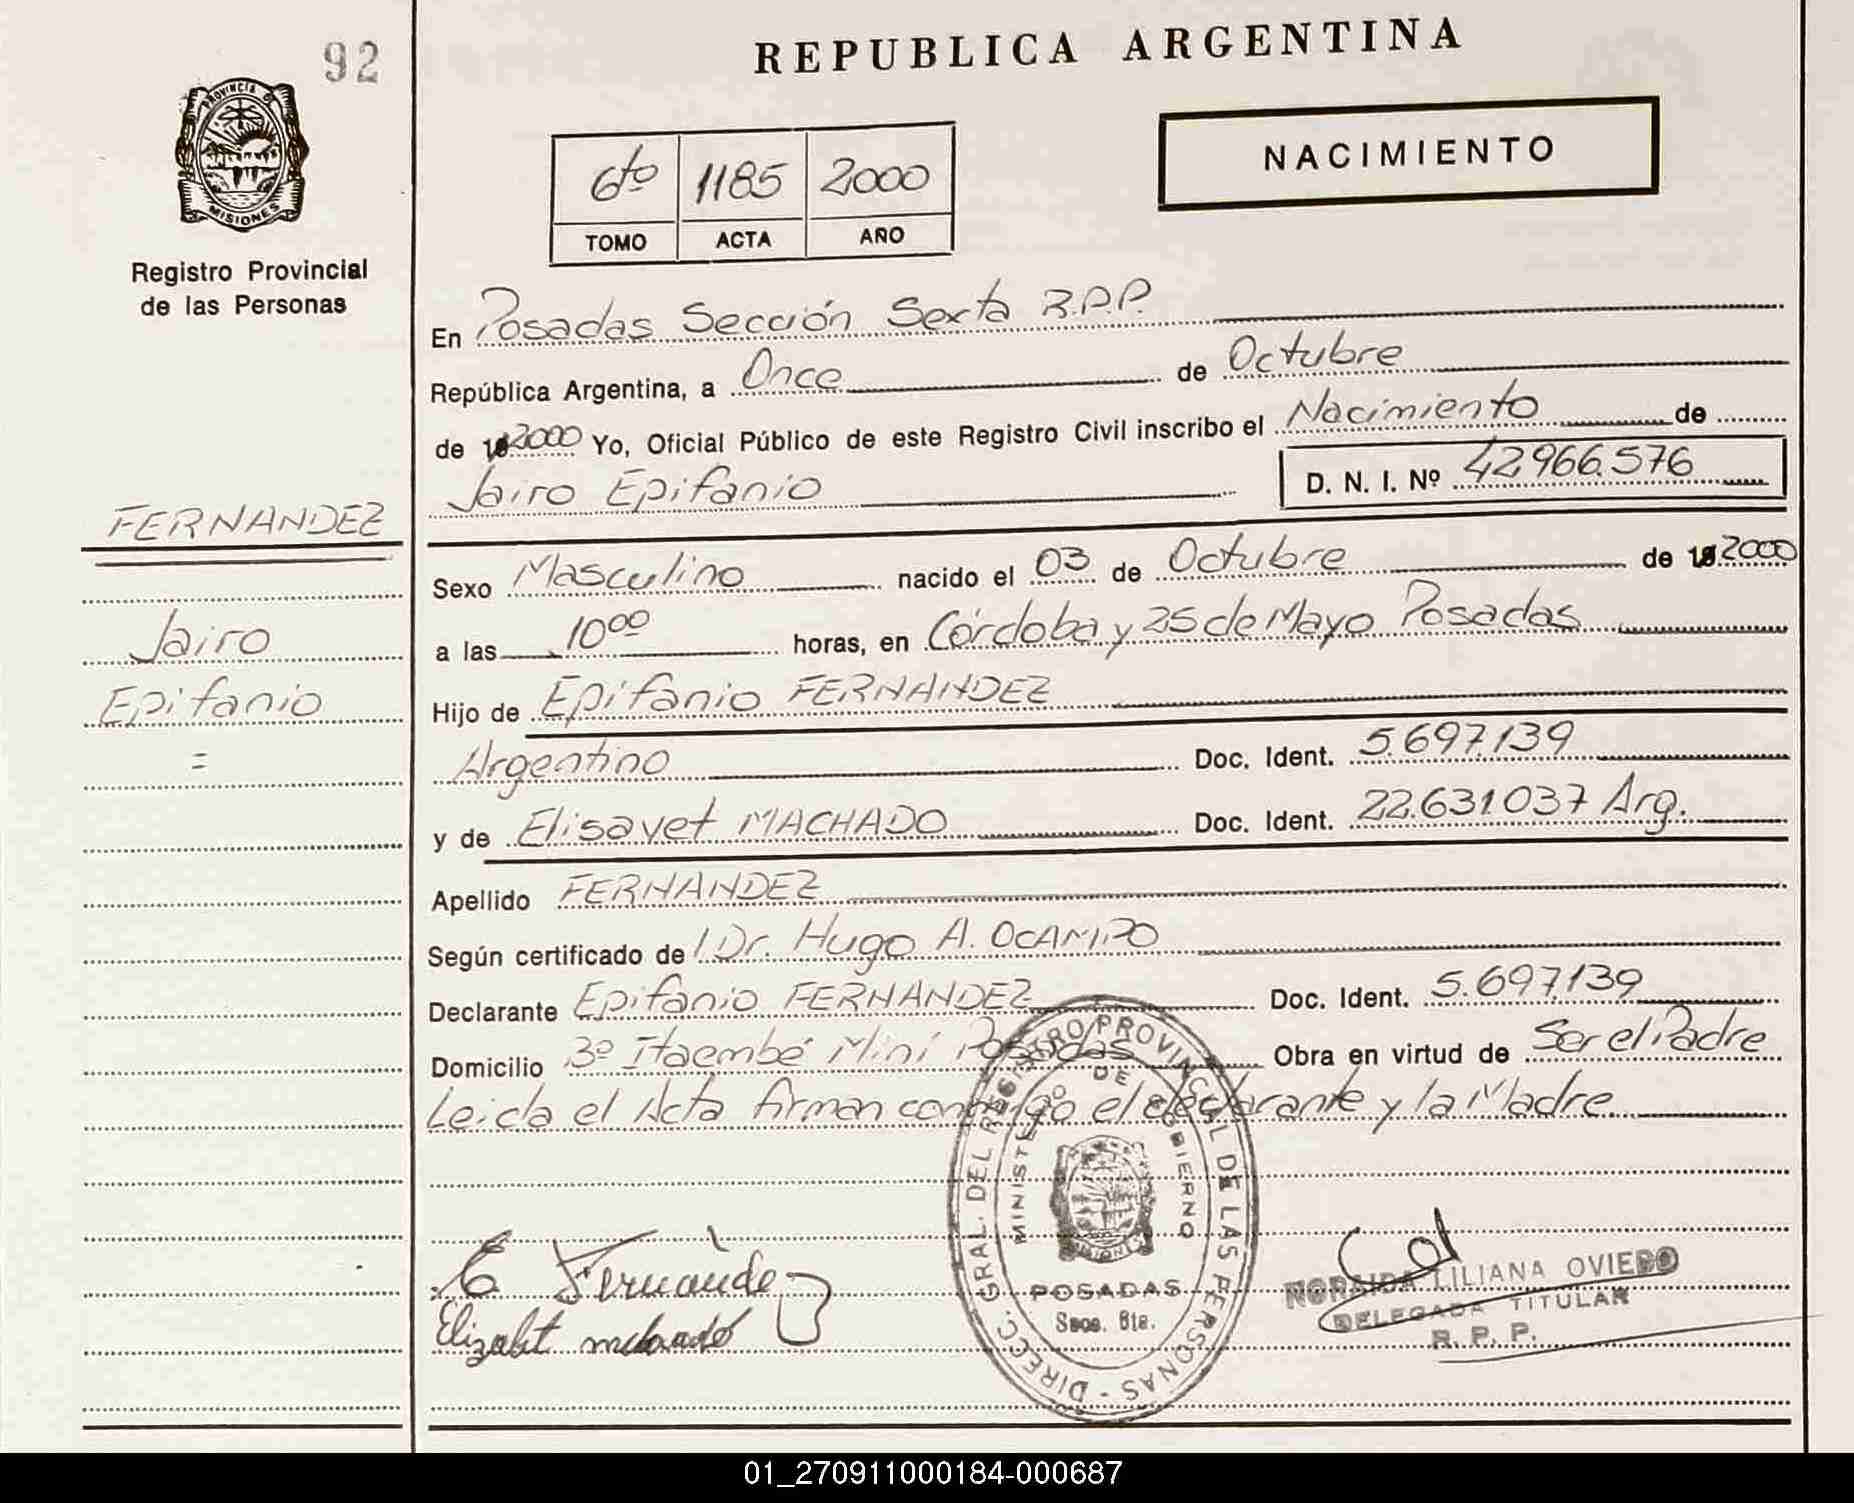 92
REPUBLICA ARGENTINA
PROVINCIA DE
MISIONES
Registro Provincial
de las Personas
6to 1185 2000
TOMO ACTA AÑO
NACIMIENTO
En Posadas Sección Sexta R.P.P.
República Argentina, a Once de Octubre
de 2000 Yo, Oficial Público de este Registro Civil inscribo el Nacimiento de
Jairo Epifanio D. N. I. Nº 42.966.576
FERNANDEZ
Jairo
Epifanio
=
Sexo Masculino nacido el 03 de Octubre de 2000
a las 10⁰⁰ horas, en Córdoba y 25 de Mayo Posadas
Hijo de Epifanio FERNANDEZ
Argentino Doc. Ident. 5.697.139
y de Elisavet MACHADO Doc. Ident. 22.631037 Arg.
Apellido FERNANDEZ
Según certificado de Dr. Hugo A. OCAMPO
Declarante Epifanio FERNANDEZ Doc. Ident. 5.697.139
Domicilio 3º Itaembé Miní Posadas Obra en virtud de Ser el Padre
Leida el Acta firman conmigo el declarante y la Madre
E Fernández
Elizabit machado
DIRECC. GRAL. DEL REGISTRO PROVINCIAL DE LAS PERSONAS -
MINISTERIO DE GOBIERNO
MISIONES
POSADAS
Secc. 6ta.
NORAIDA LILIANA OVIEDO
DELEGADA TITULAR
R. P. P.
01_270911000184-000687